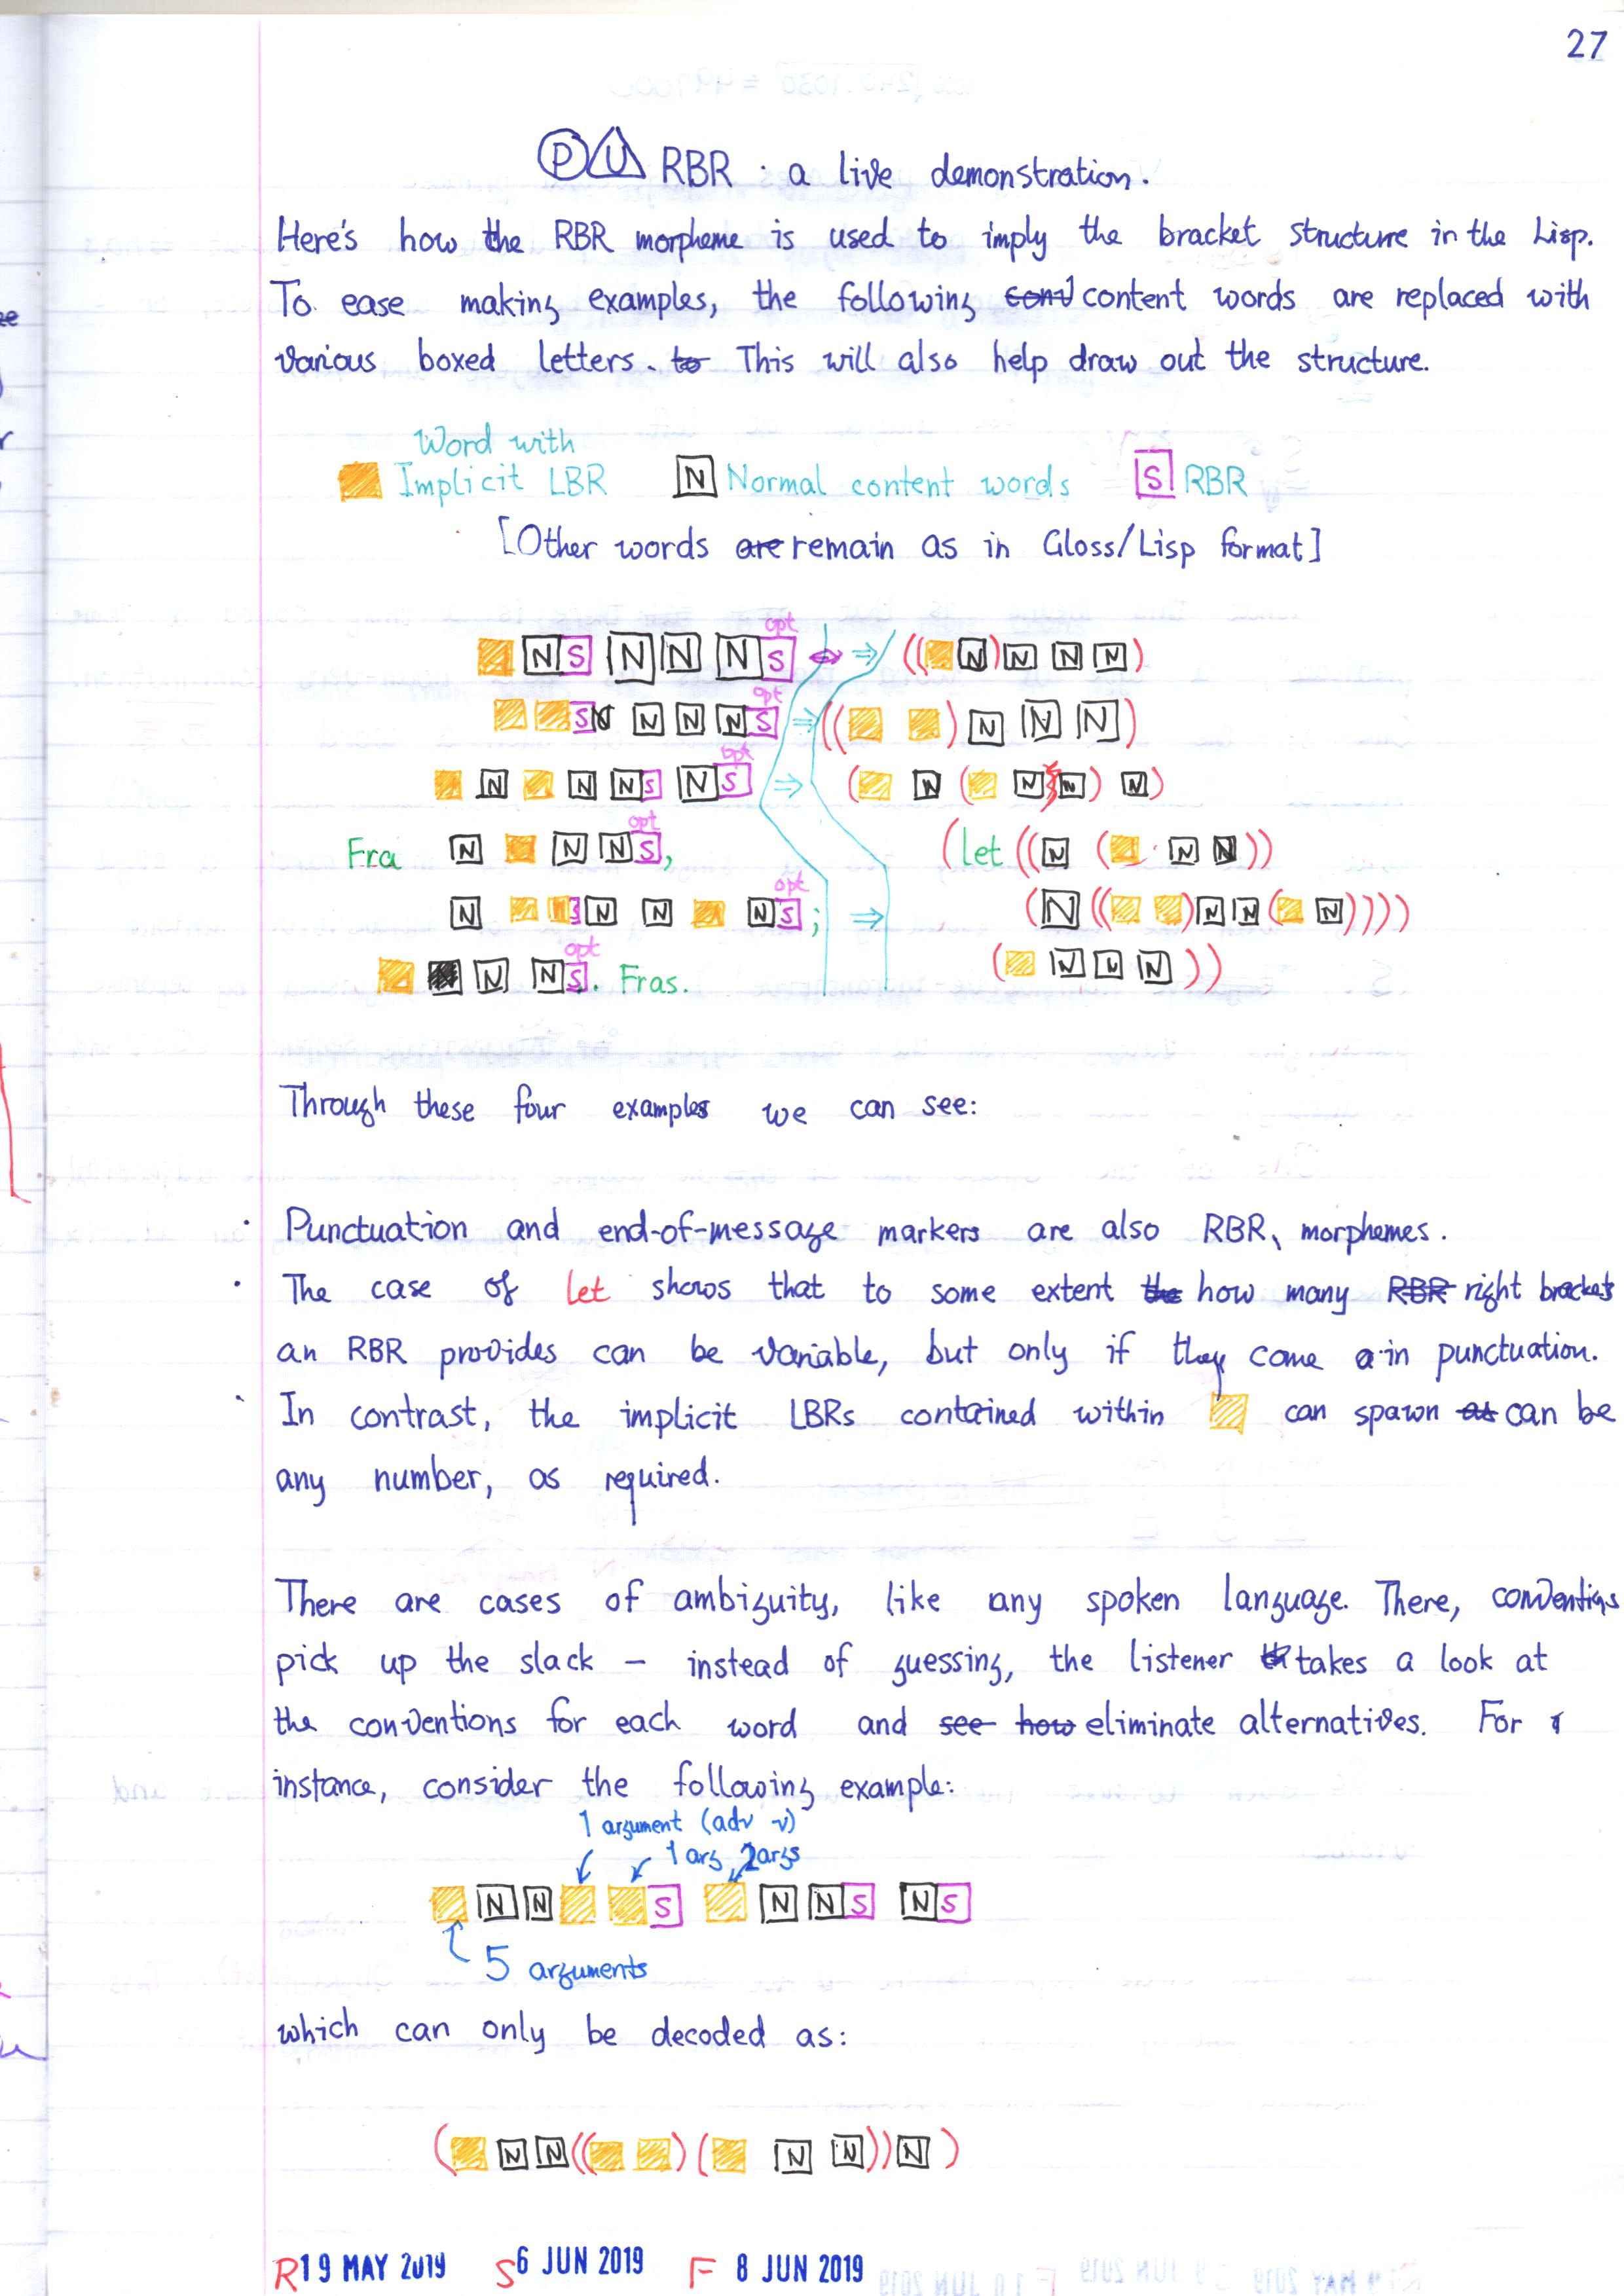 27
P U RBR : a live demonstration.
Here's how the RBR morpheme is used to imply the bracket structure in the Lisp.
To ease making examples, the following content words are replaced with
various boxed letters. This will also help draw out the structure.
Word with
Implicit LBR N Normal content words S RBR
[Other words remain as in Gloss/Lisp format]
opt
N S N N N S ⇒ (( N ) N N N )
opt
S N N N S ⇒ (( ) N N N )
opt
N N N S N S ⇒ ( N ( N N ) N )
opt
Fra N N N S , (let ((N ( N N ))
opt
N S N N N S ; ⇒ (N (( ) N N ( N ))))
opt
N N S . Fras. ( N N N ))
Through these four examples we can see:
· Punctuation and end-of-message markers are also RBR morphemes.
· The case of let shows that to some extent how many right brackets
an RBR provides can be variable, but only if they come in punctuation.
· In contrast, the implicit LBRs contained within can spawn can be
any number, as required.
There are cases of ambiguity, like any spoken language. There, conventions
pick up the slack – instead of guessing, the listener takes a look at
the conventions for each word and eliminate alternatives. For
instance, consider the following example:
1 argument (adv v)
1 arg, 2 args
N N S N N S N S
5 arguments
which can only be decoded as:
( N N (( ) ( N N )) N )
R 19 MAY 2019 S 6 JUN 2019 F 8 JUN 2019